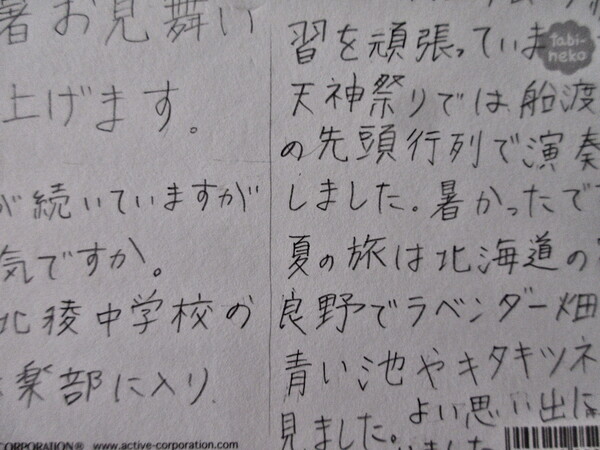 暑お見舞い
上げます。
が続いていますが
気ですか。
北稜中学校の
楽部に入り
習を頑張っていま
天神祭りでは船渡
の先頭行列で演奏
しました。暑かったで
夏の旅は北海道の
良野でラベンダー畑
青い池やキタキツネ
見ました。よい思い出に
いました
tabi-
neko
CORPORATION® www.active-corporation.com